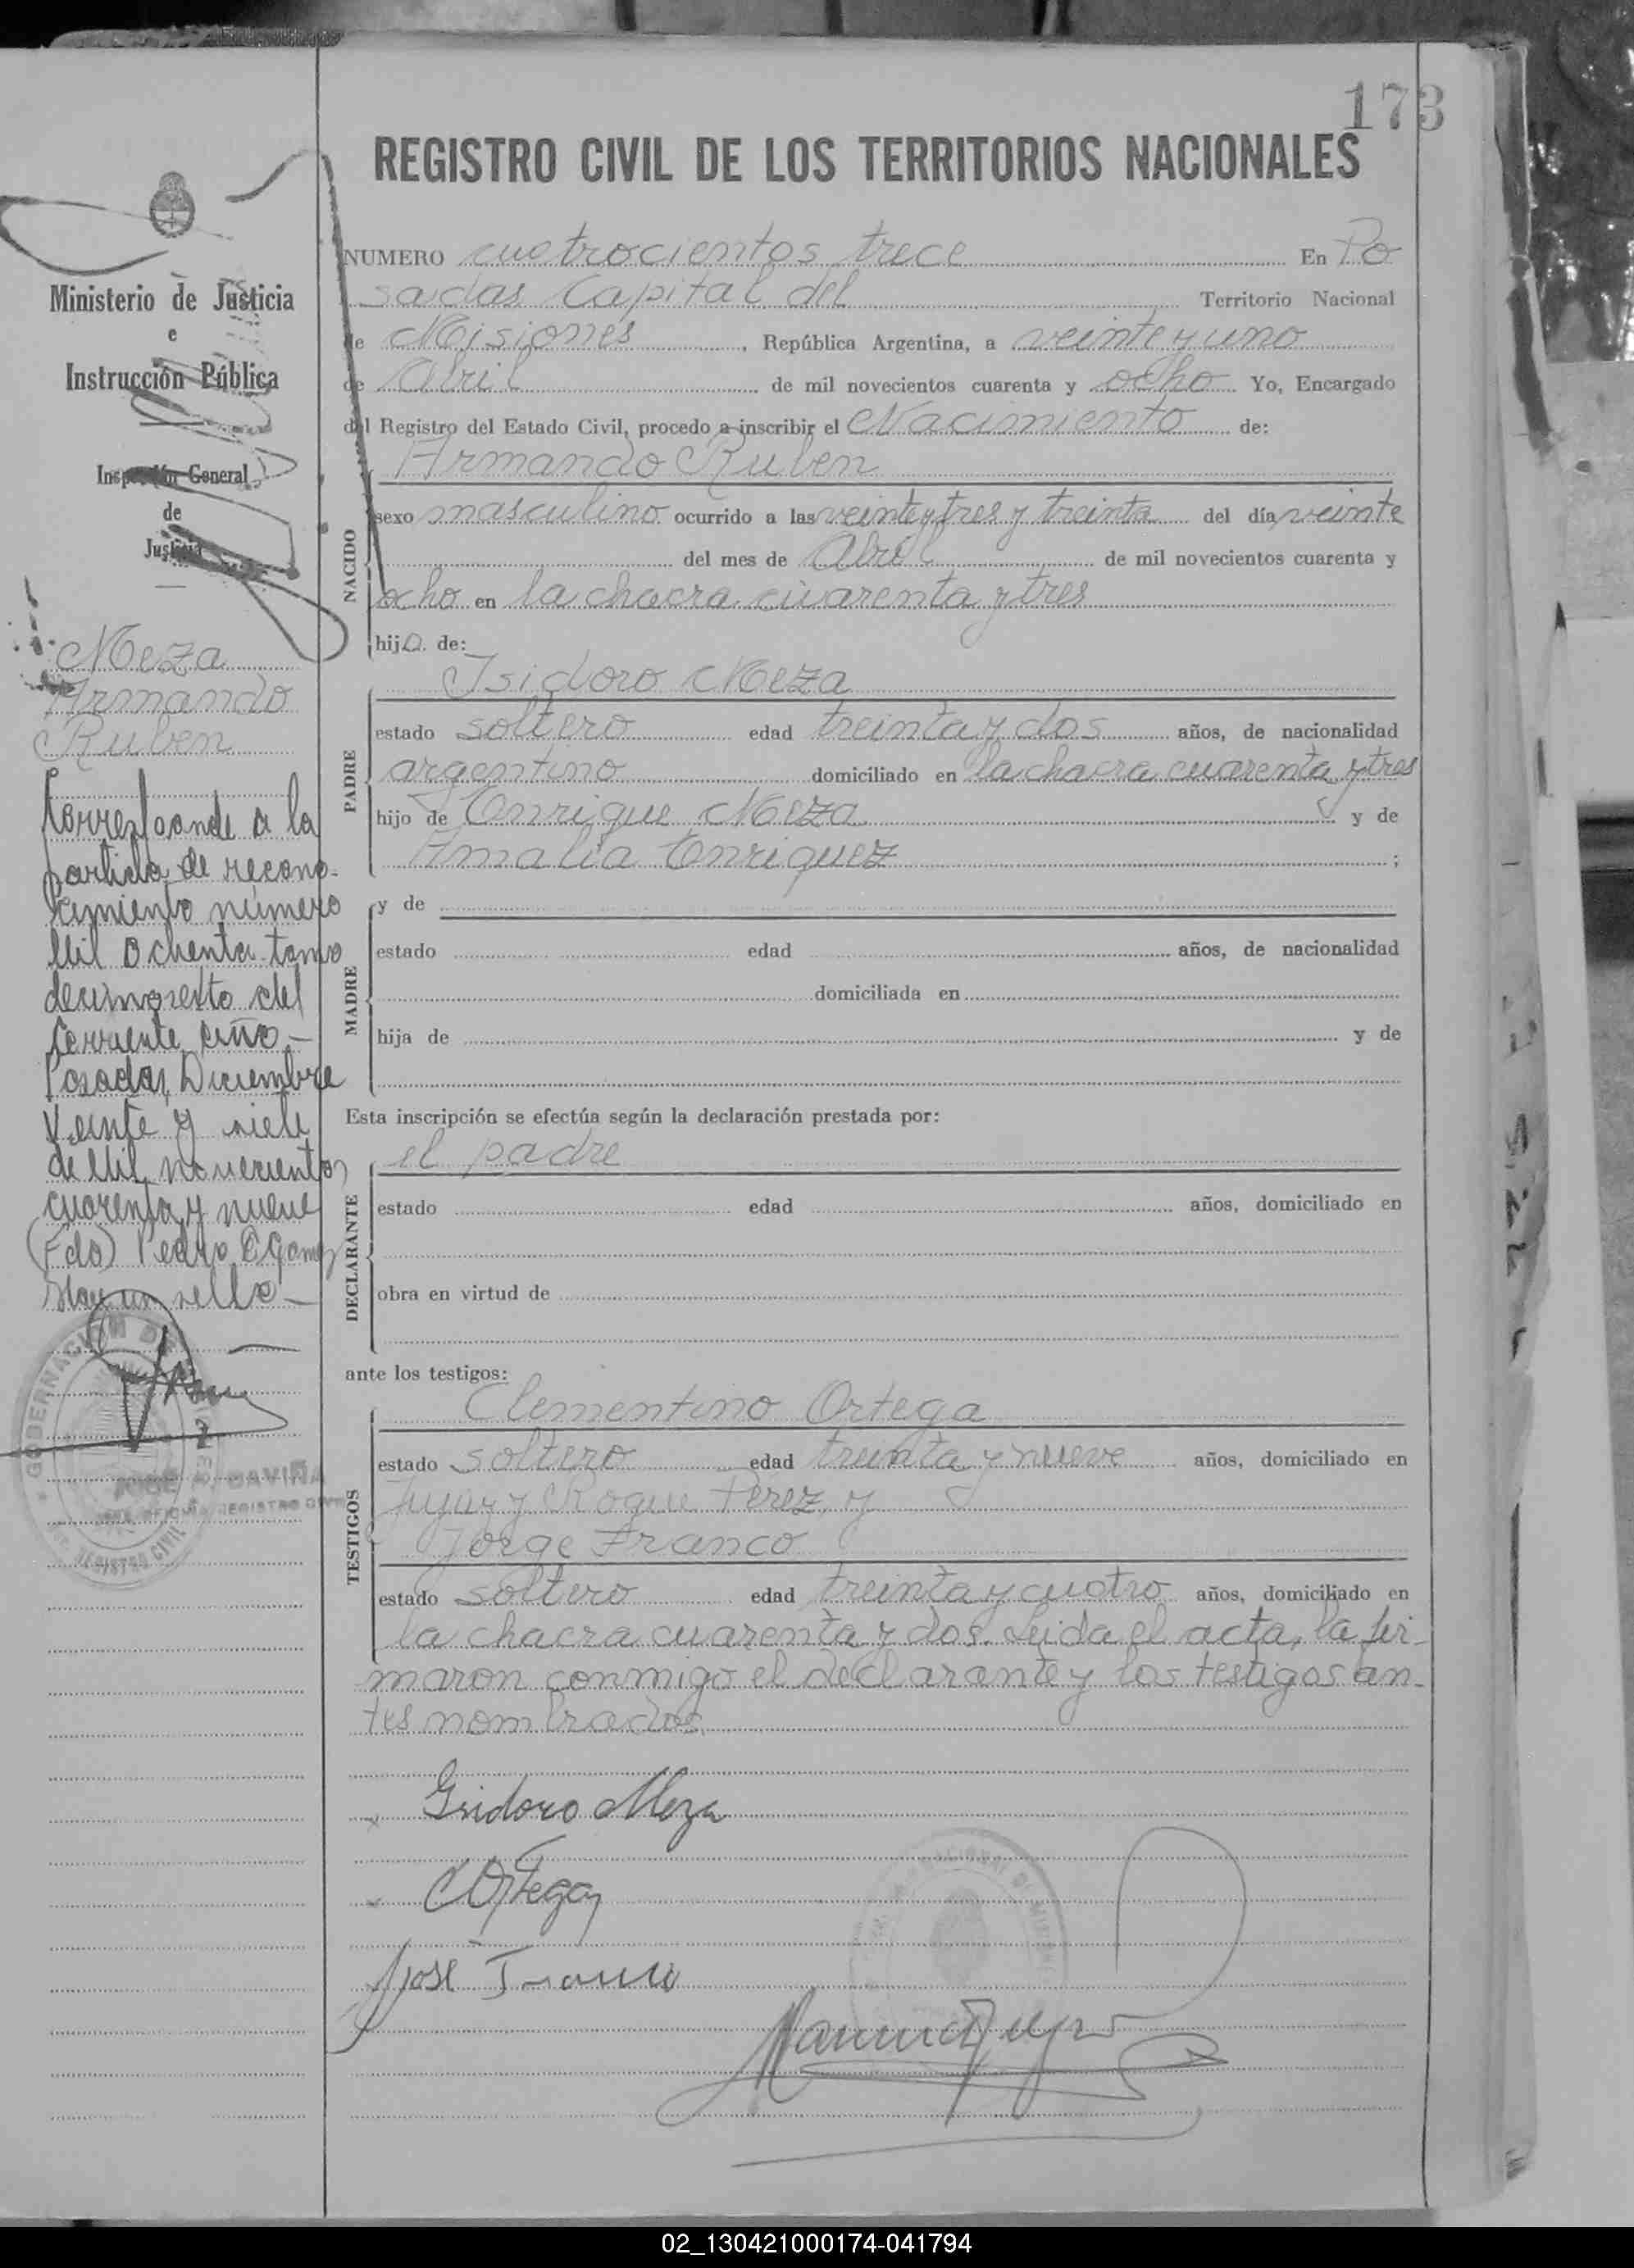 173
REGISTRO CIVIL DE LOS TERRITORIOS NACIONALES
Ministerio de Justicia
e
Instrucción Pública
Inspección General
de
Justicia
Meza
Armando
Ruben
Corresponde a la
partida de recono-
cimiento número
Mil ochenta tomo
decimosexto del
corriente año -
Posadas, Diciembre
veinte y siete
de Mil novecientos
cuarenta y nueve
(Fdo) Pedro
Hay un sello -
GOBERNACION DE
JOSE A. GAVIÑA
REGISTRO CIVIL
NUMERO cuatrocientos trece En Po
sadas Capital del Territorio Nacional
de Misiones, República Argentina, a veinte y uno
de Abril de mil novecientos cuarenta y ocho Yo, Encargado
del Registro del Estado Civil, procedo a inscribir el Nacimiento de:
Armando Ruben
NACIDO
sexo masculino ocurrido a las veinte y tres y treinta del día veinte
del mes de Abril de mil novecientos cuarenta y
ocho en la chacra cuarenta y tres
hijo de:
PADRE
Isidoro Meza
estado soltero edad treinta y dos años, de nacionalidad
argentino domiciliado en la chacra cuarenta y tres
hijo de Enrique Meza y de
Amalia Enriquez ;
MADRE
y de
estado edad años, de nacionalidad
domiciliada en
hija de y de
Esta inscripción se efectúa según la declaración prestada por:
DECLARANTE
el padre
estado edad años, domiciliado en
obra en virtud de
ante los testigos:
TESTIGOS
Clementino Ortega
estado soltero edad treinta y nueve años, domiciliado en
Jujuy y Roque Perez y
Jorge Franco
estado soltero edad treinta y cuatro años, domiciliado en
la chacra cuarenta y dos. Leida el acta, la fir-
maron conmigo el declarante y los testigos an-
tes nombrados.
Isidoro Meza
C Ortega
José Franco
02_130421000174-041794